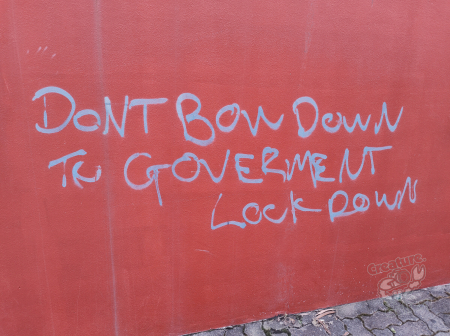 DONT BOW DOWN
TO GOVERMENT
LOCKDOWN
Creature